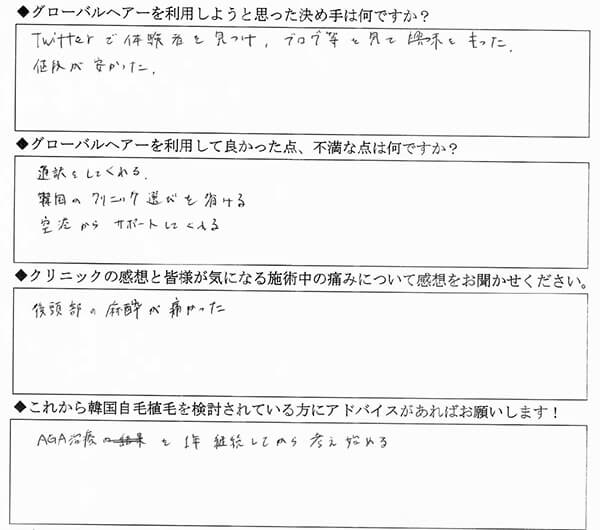 ◆グローバルヘアーを利用しようと思った決め手は何ですか？
Twitterで体験者を見つけ，ブログ等を見て興味をもった．
値段が安かった．
◆グローバルヘアーを利用して良かった点、不満な点は何ですか？
通訳をしてくれる．
韓国のクリニック選びを省ける
空港からサポートしてくれる
◆クリニックの感想と皆様が気になる施術中の痛みについて感想をお聞かせください。
後頭部の麻酔が痛かった
◆これから韓国自毛植毛を検討されている方にアドバイスがあればお願いします！
AGA治療を1年継続してから考え始める